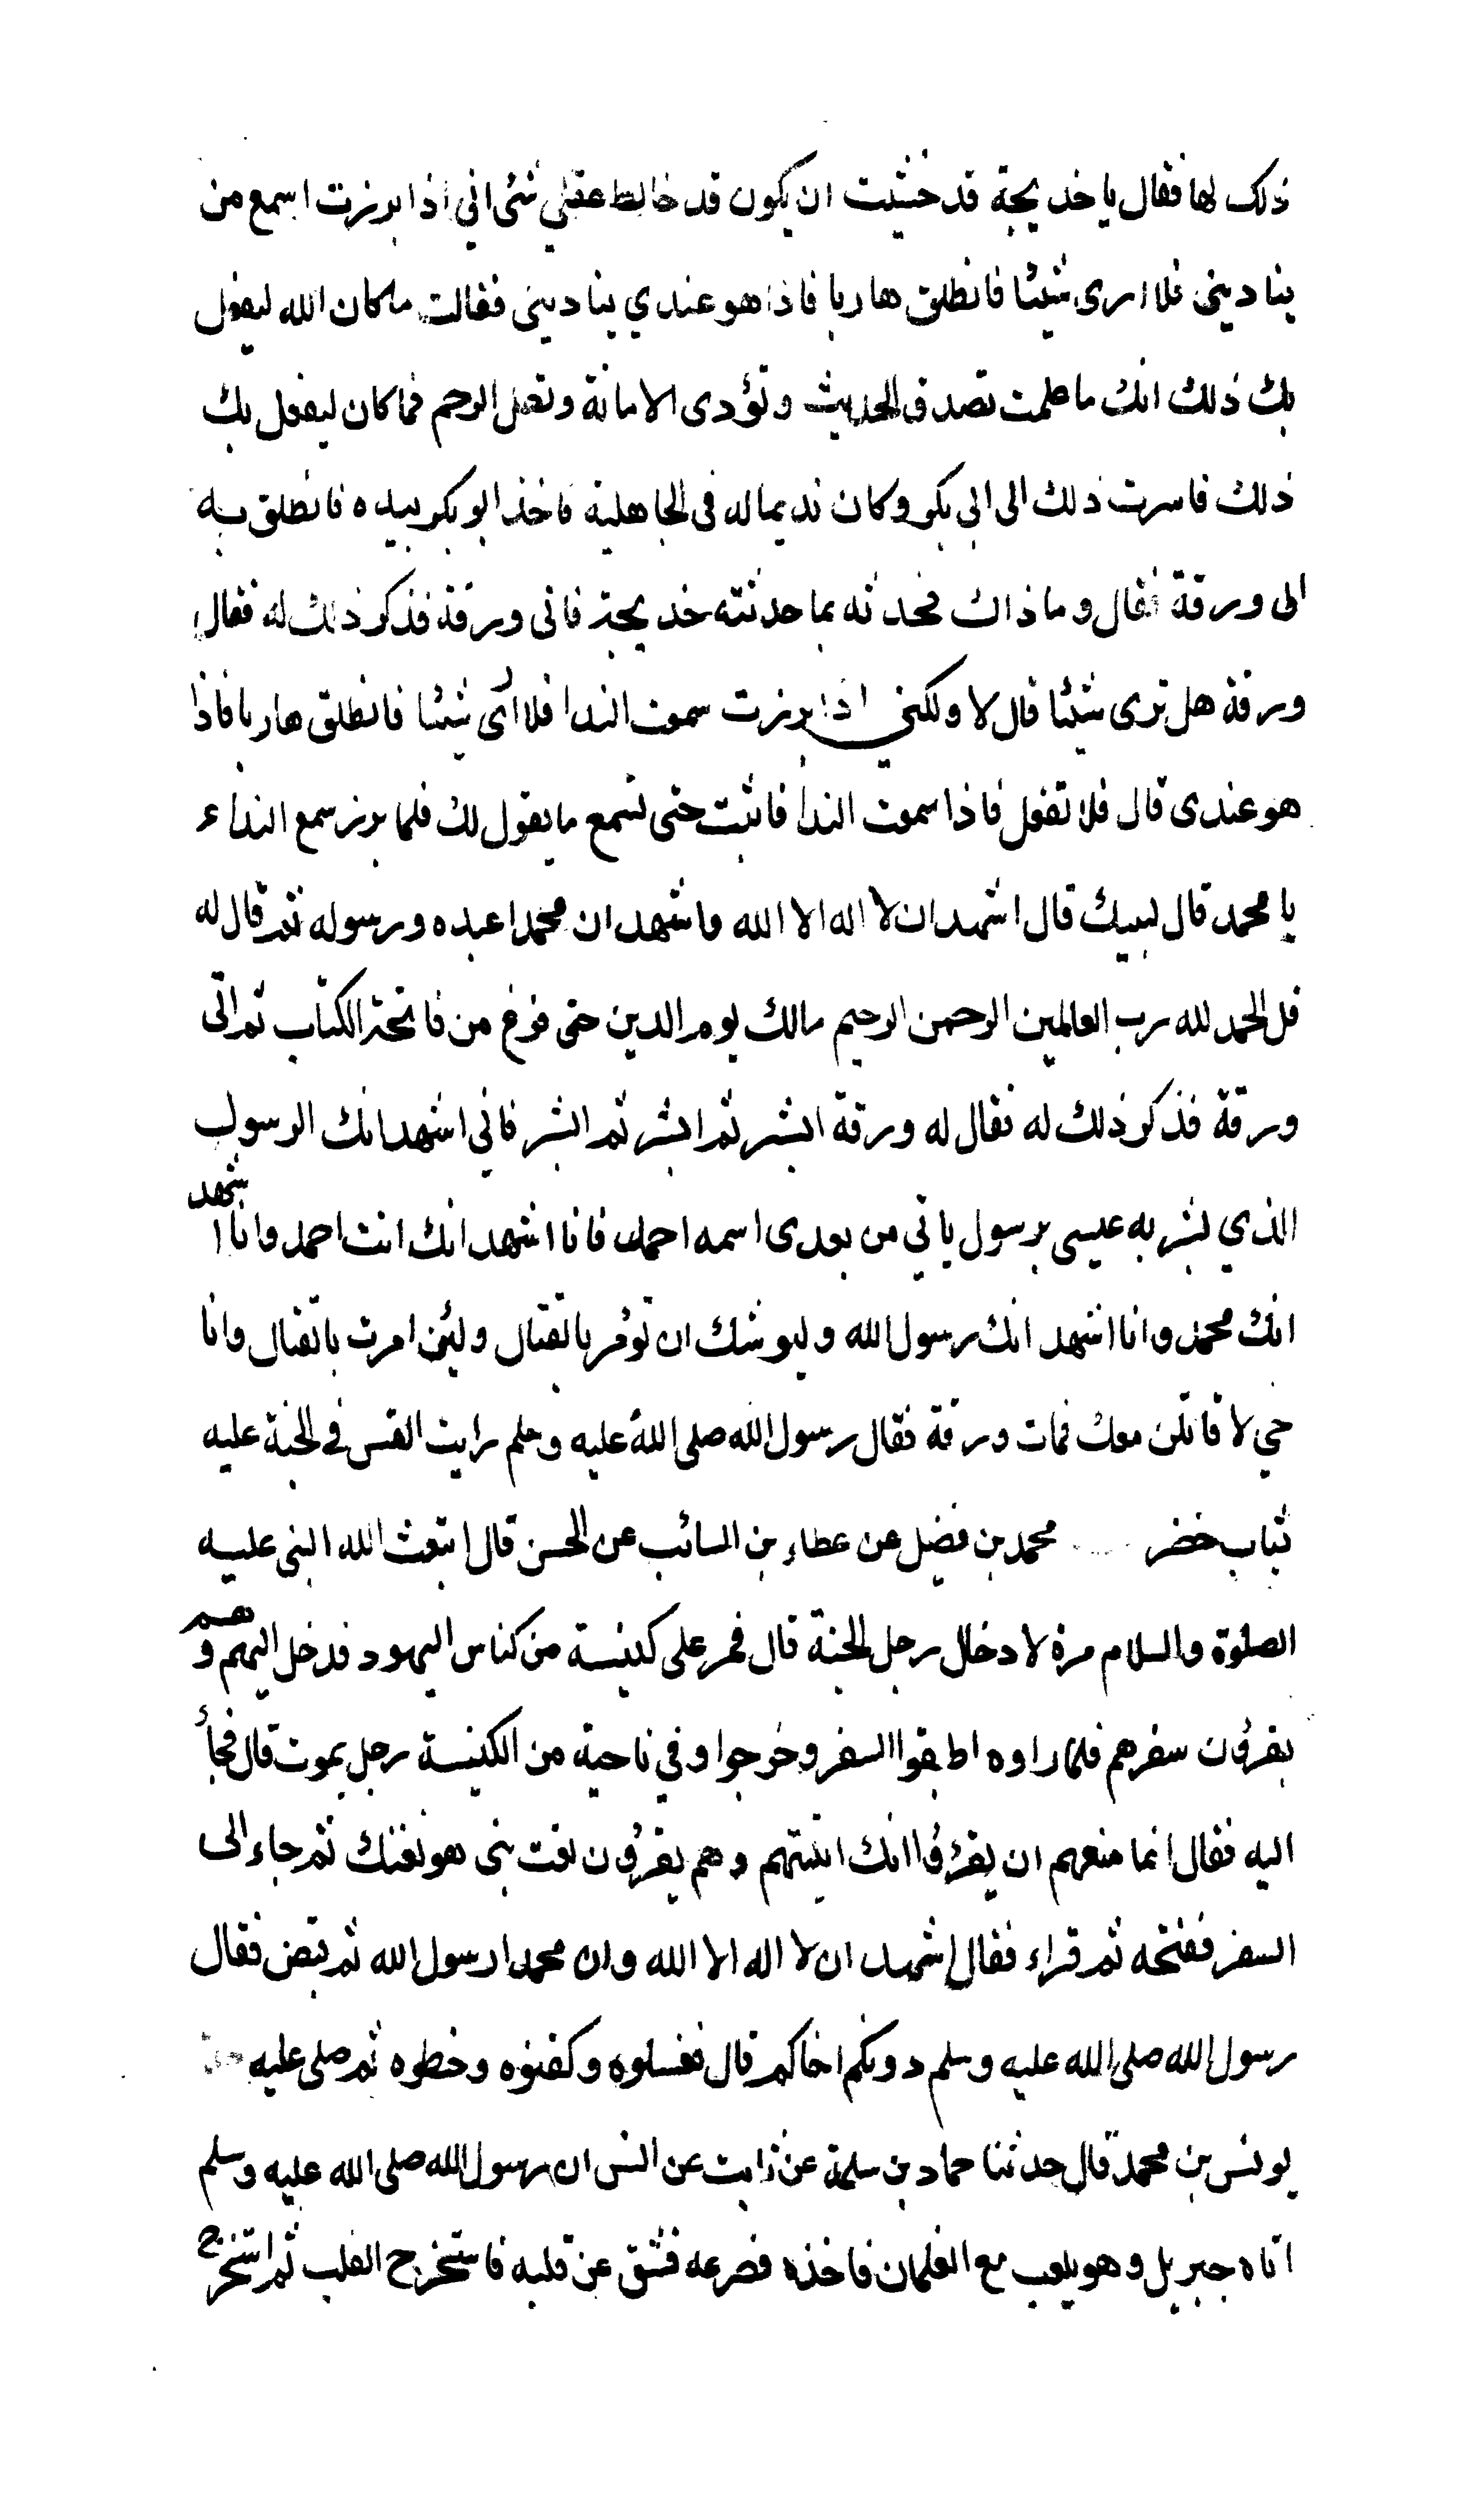 ذلك لها فقال يا خديجة قد خشيت ان يكون قد خالط عقلي شئ اني اذا برزت اسمع من
يناديني فلا ارى شيئا فانطلق هاربا فاذا هو عندي يناديني فقالت ما كان الله ليفعل
بك ذلك انك ما علمت تصدق الحديث وتؤدى الامانة وتصل الرحم فما كان ليفعل بك
ذلك فاسرت ذلك الى ابي بكر وكان نديما له في الجاهلية فاخذ ابو بكر بيده فانطلق به
الى ورقة فقال وما ذاك فحدثه بما حدثته خديجة فاتى ورقة فذكر ذلك له فقال
ورقة هل ترى شيئا قال لا ولكني اذا برزت سمعت الندا فلا أى شيئا فانطلق هاربا فاذا
هو عندى قال فلا تفعل فاذا سمعت الندا فاثبت حتى تسمع ما يقول لك فلما برز سمع النداء
يا محمد قال لبيك قال اشهد ان لا اله الا الله واشهد ان محمدا عبده ورسوله ثم قال له
قل الحمد لله رب العالمين الرحمن الرحيم مالك يوم الدين حتى فرغ من فاتحة الكتاب ثم اتى
ورقة فذكر ذلك له فقال له ورقة ابشر ثم ابشر ثم ابشر فاني اشهد انك الرسول
الذي بشر به عيسى برسول ياتي من بعدى اسمه احمد فانا اشهد انك انت احمد وانا اشهد
انك محمد وانا اشهد انك رسول الله وليوشك ان تؤمر بالقتال ولئن امرت بالقتال وانا
حي لا قاتلن معك فمات ورقة فقال رسول الله صلى الله عليه وسلم رايت القس في الجنة عليه
ثياب خضر محمد بن فضيل عن عطاء بن السائب عن الحسن قال ابتعث الله النبي عليه
الصلوة والسلام مرة لادخال رجل الجنة قال فمر على كنيسة من كناس اليهود فدخل اليهم وهم
يقرؤن سفرهم فلما راوه اطبقوا السفر وخرجوا وفي ناحية من الكنيسة رجل يموت قال فجأ
اليه فقال انما منعهم ان يقرؤا انك اتيتهم وهم يقرؤن نعت نبي هو نعتك ثم جاء الى
السفر ففتحه ثم قراء فقال اشهد ان لا اله الا الله وان محمدا رسول الله ثم قبض فقال
رسول الله صلى الله عليه وسلم دونكم اخاكم قال فغسلوه وكفنوه وحنطوه ثم صلى عليه
يونس بن محمد قال حدثنا حماد بن سلمة عن ثابت عن انس ان رسول الله صلى الله عليه وسلم
اتاه جبريل وهو يلعب مع الغلمان فاخذه فصرعه فشق عن قلبه فاستخرج القلب ثم استخرج